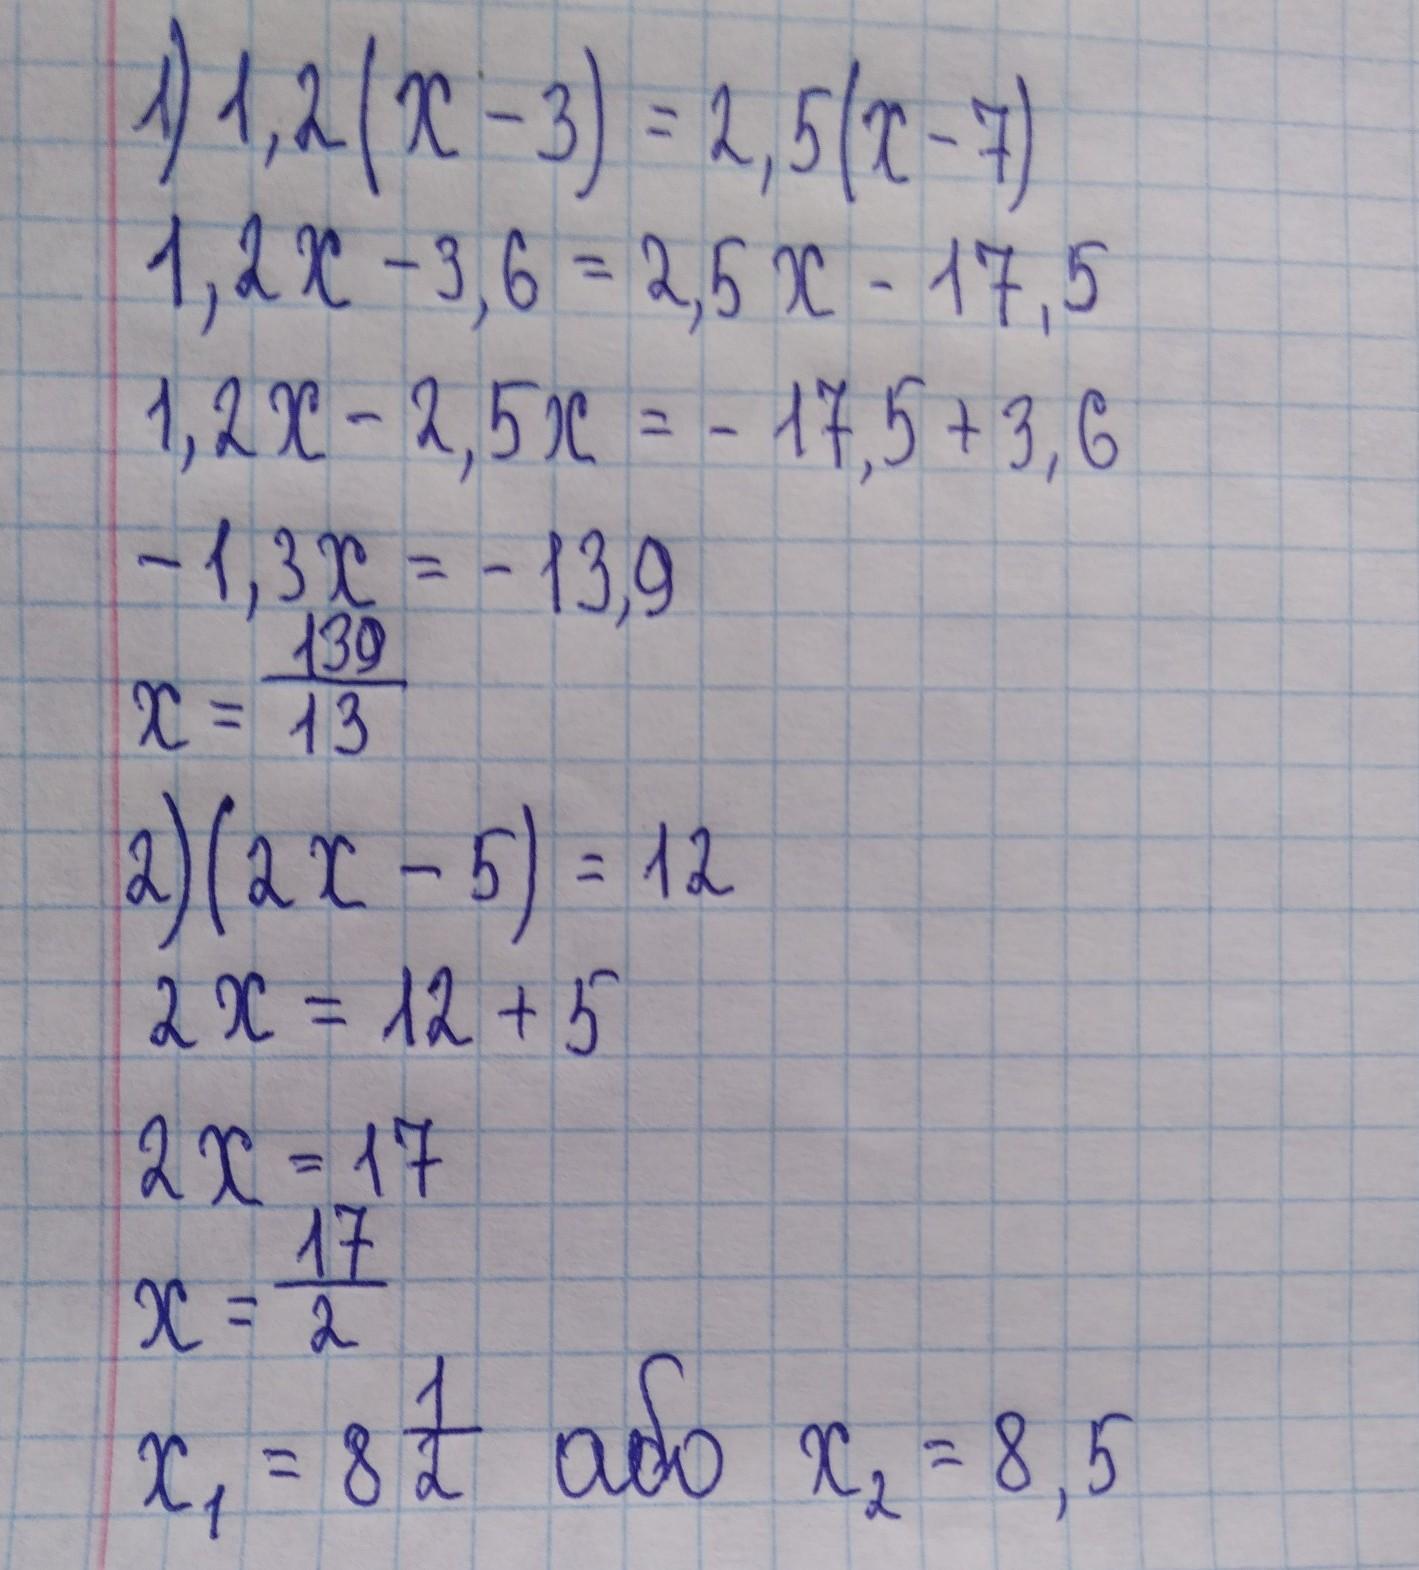 1) 1,2(x - 3) = 2,5(x - 7)
1,2x - 3,6 = 2,5x - 17,5
1,2x - 2,5x = - 17,5 + 3,6
- 1,3x = - 13,9
x = 139/13
2) (2x - 5) = 12
2x = 12 + 5
2x = 17
x = 17/2
x₁ = 8 1/2 або x₂ = 8,5